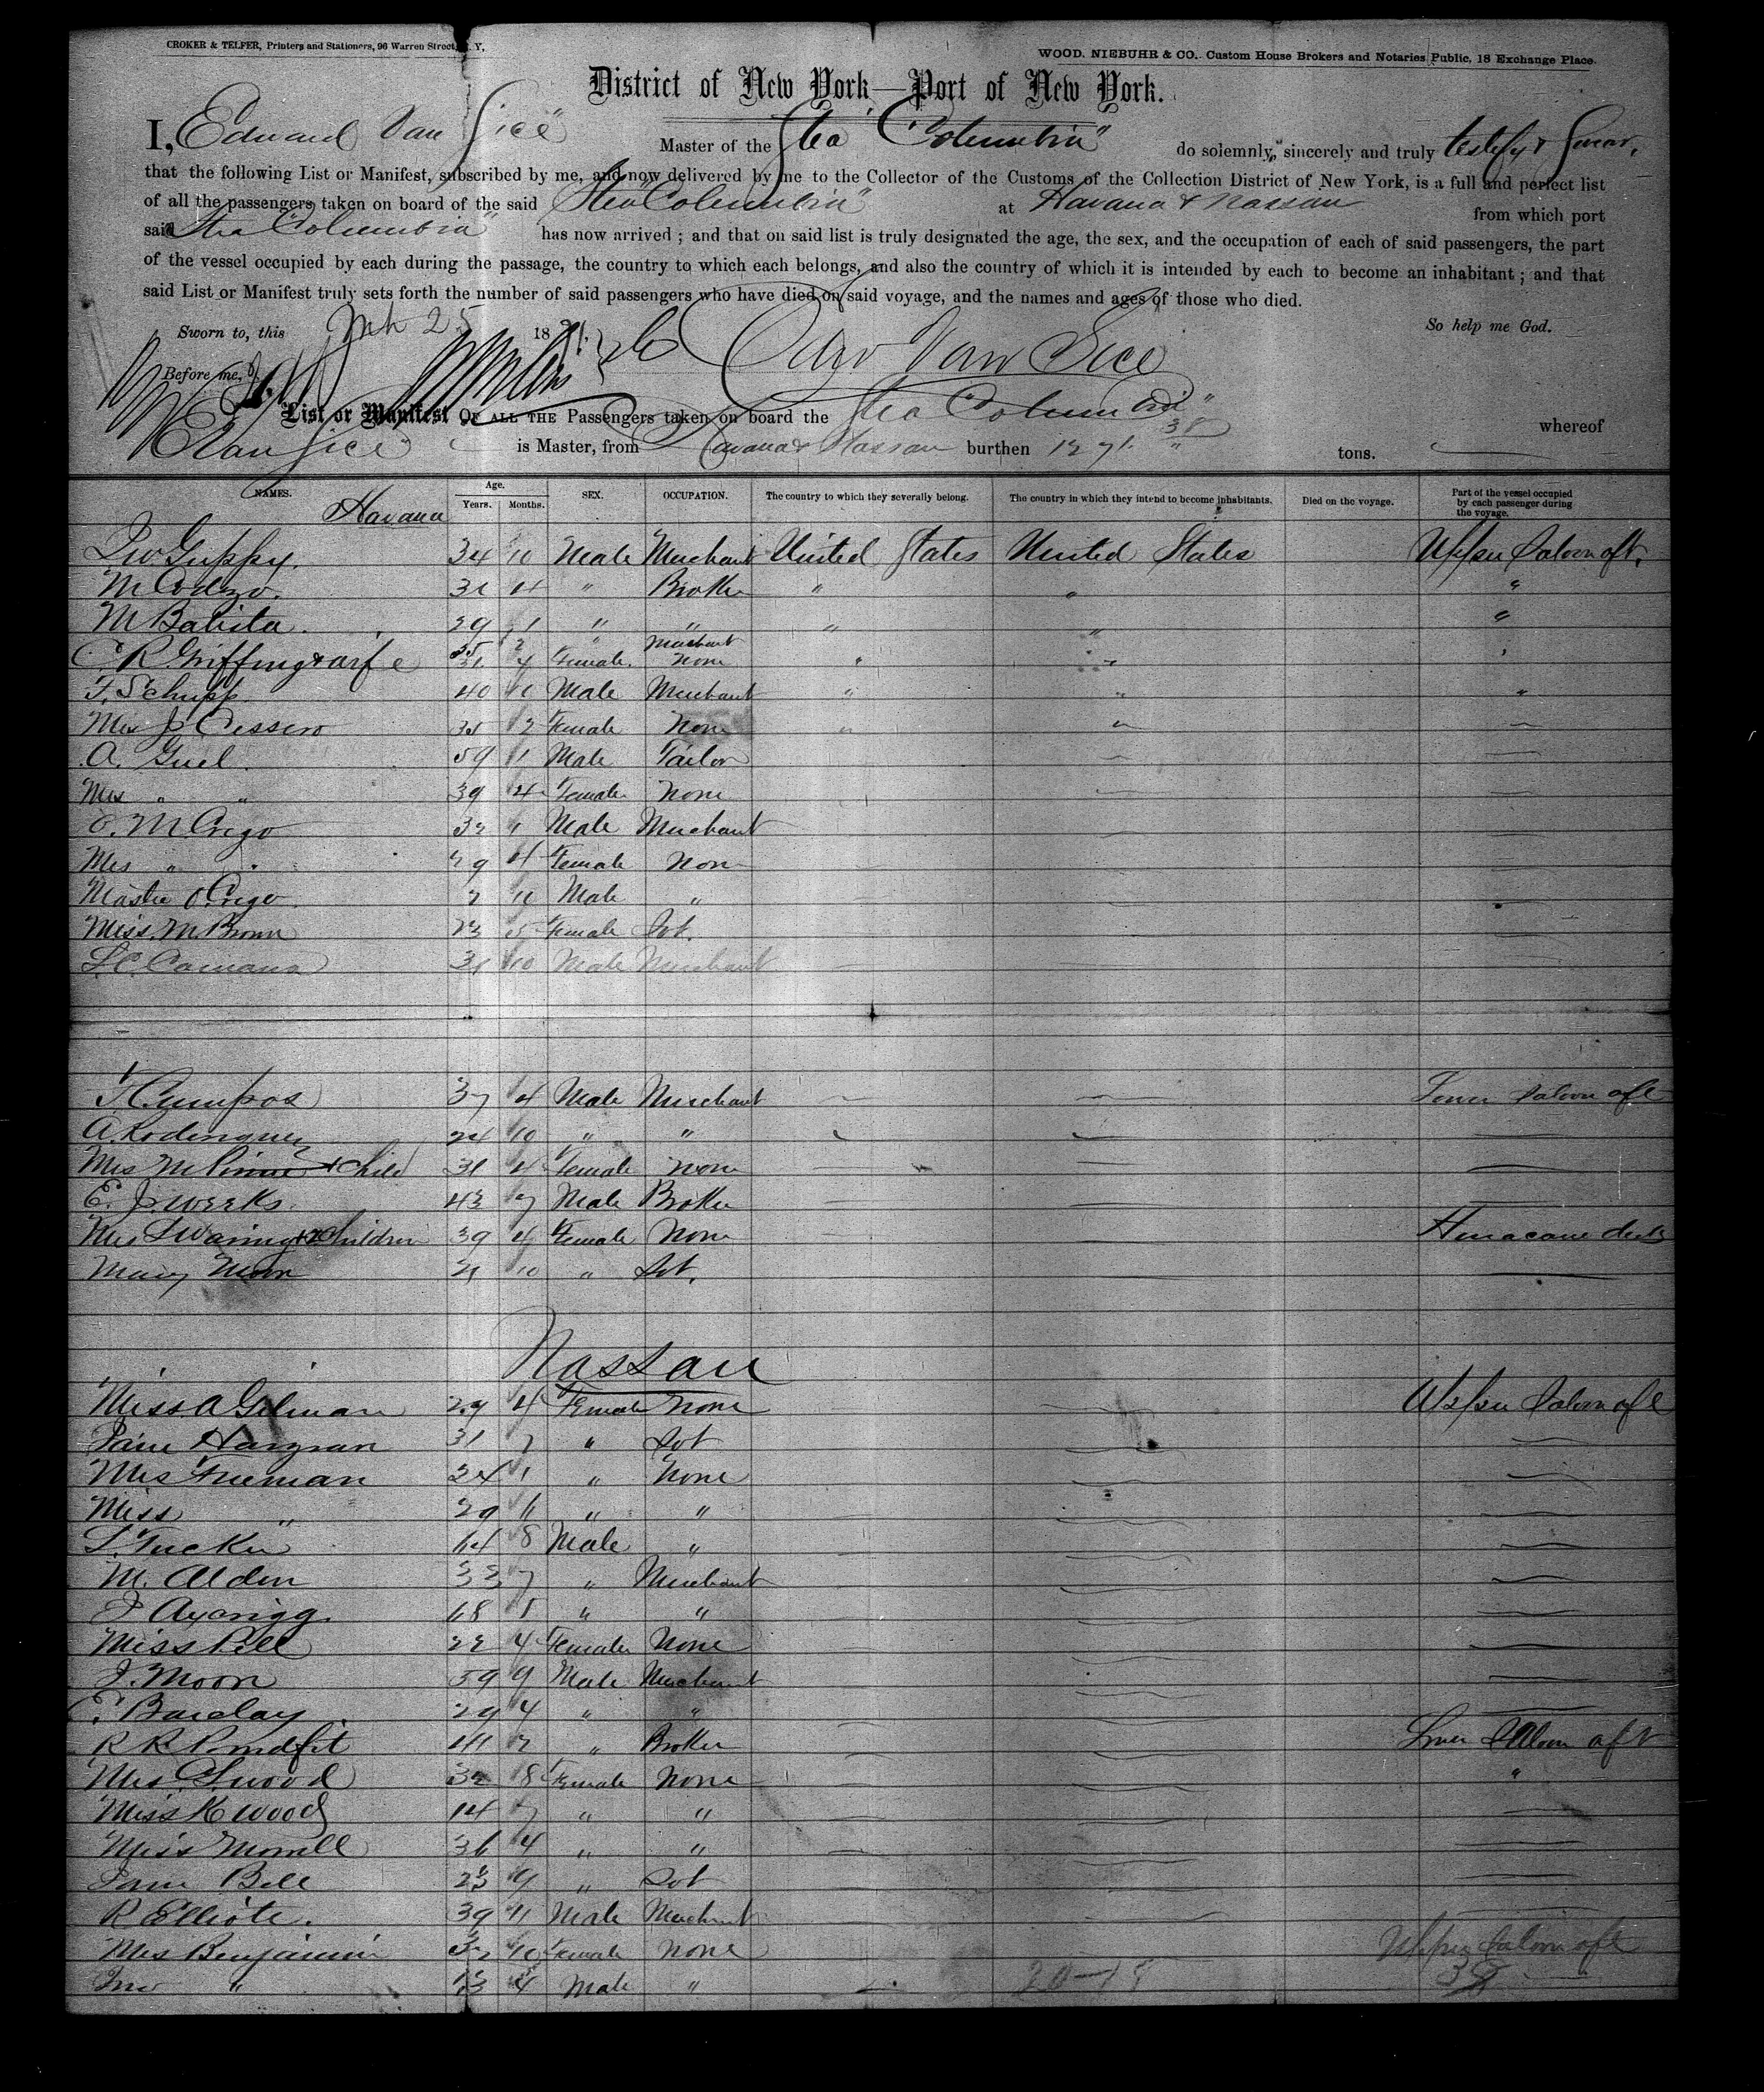 CROKER & TELFER, Printers and Stationers, 96 Warren Street, N. Y,
WOOD, NIEBUHR & CO., Custom House Brokers and Notaries Public, 18 Exchange Place.
District of New York—Port of New York.
I, Edward Van Sice Master of the Stea "Columbia" do solemnly, sincerely and truly testify & swear,
that the following List or Manifest, subscribed by me, and now delivered by me to the Collector of the Customs of the Collection District of New York, is a full and perfect list
of all the passengers taken on board of the said Stea "Columbia" at Havana & Nassau from which port
said Stea "Columbia" has now arrived ; and that on said list is truly designated the age, the sex, and the occupation of each of said passengers, the part
of the vessel occupied by each during the passage, the country to which each belongs, and also the country of which it is intended by each to become an inhabitant ; and that
said List or Manifest truly sets forth the number of said passengers who have died on said voyage, and the names and ages of those who died.
Sworn to, this 25 18 So help me God.
Edw Van Sice
Before me,
List or Manifest OF ALL THE Passengers taken on board the Stea Columbia" whereof
E Van Sice is Master, from Havana & Nassau burthen tons.
NAMES. Age. Years. Months. SEX. OCCUPATION. The country to which they severally belong. The country in which they intend to become inhabitants. Died on the voyage. Part of the vessel occupied by each passenger during the voyage.
Havana
Guppy. 34 10 Male Merchant United States United States Upper Saloon aft.
M Codezo. 4 " Broker " " "
M Batista. 29 1 " " " " "
35 2 Merchant
C R Griffing & wife 31 4 Female. None " " "
F. Schupp 40 10 Male Merchant " " "
Mrs J Cessero 2 Female None " "
A. Guel 59 1 Male Tailor
Mrs " " 39 4 Female None
O. M. Crigo 32 1 Male Merchant
Mrs " " 29 4 Female None
Master O. Crigo 7 10 Male "
Miss. M. Brown 23 5 Female Svt.
10 Male Merchant
37 4 Male Merchant Lower Saloon aft
A. Roderiguez 24 10 " "
Mrs M & Child 31 4 Female None
E. J. Weeks. 43 7 Male Broker
Mrs & Children 39 4 Female None Hurricane deck
Mary 10 " Svt.
Nassau
Miss A Gilman 29 4 Female None Upper Saloon aft
Hargran 31 7 " Svt
Mrs Freeman 24 1 " None
Miss " 29 11 " "
Tucker 64 8 Male "
M. Alden 33 7 " Merchant
J Aycrigg. 68 1 " "
Miss Pell 22 4 Female None
J. Moon 59 9 Male Merchant
Barclay 29 4 " "
R R 41 7 " Broker Lower Saloon aft
Mrs. Wood 32 8 Female None "
Miss K Wood 14 7 " "
Miss Morrell 36 4 " "
Bell 23 9 " Svt
R Elliote. 39 11 Male Merchant
Mrs Benjamin 10 Female None Upper Saloon aft
" 13 4 Male " 38